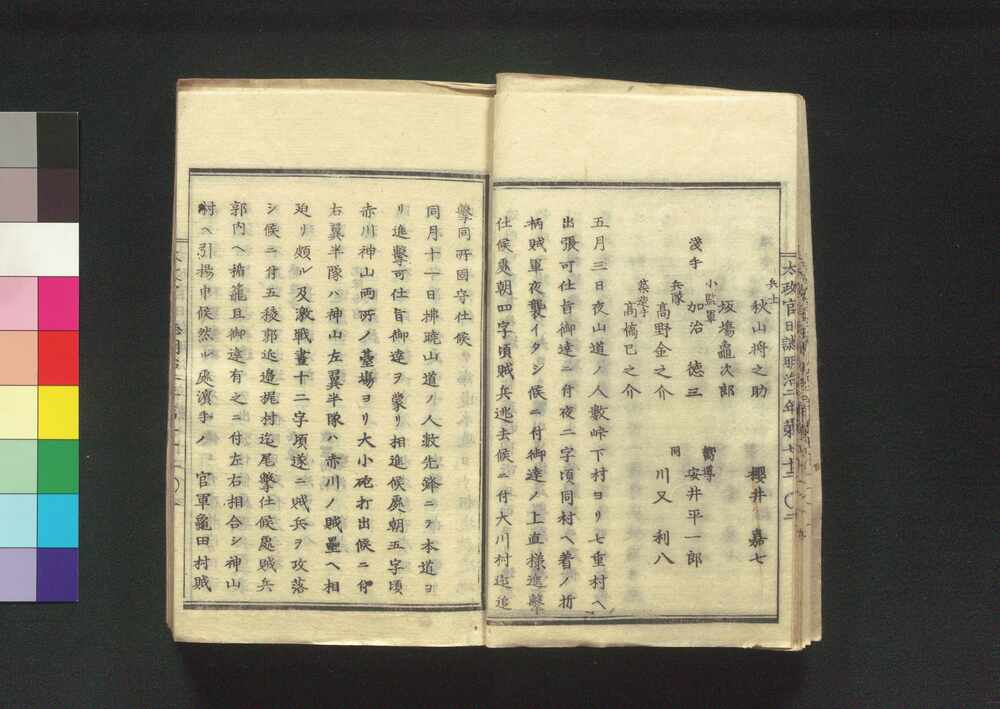 太政官日誌明治二年第七十二 〇二
兵士 秋山将之助 櫻井嘉七
坂場龜次郎
淺手 小監軍 加治德三 嚮導 安井平一郎
兵隊 高野金之介 同 川又利八
築造手 高橋巳之介
五月三日夜山道ノ人数峠下村ヨリ七重村ヘ
出張可仕旨御達ニ付夜二字頃同村ヘ着ノ折
柄賊軍夜襲イタシ候ニ付御達ノ上直様進擊
仕候處朝四字頃賊兵逃去候ニ付大川村迄追
擊同所固守仕候
同月十一日拂曉山道ノ人数先鋒ニテ本道ヨ
リ進擊可仕旨御達ヲ蒙リ相進候處朝五字頃
赤川神山両所ノ臺場ヨリ大小砲打出候ニ付
右翼半隊ハ神山左翼半隊ハ赤川ノ賊壘ヘ相
迫リ頗ル及激戰晝十二字頃遂ニ賊兵ヲ攻落
シ候ニ付五稜郭近邊梶村迄尾擊仕候處賊兵
郭内ヘ楯籠且御達有之ニ付左右相合シ神山
村ヘ引揚申候然ル處濱手ノ 官軍龜田村賊